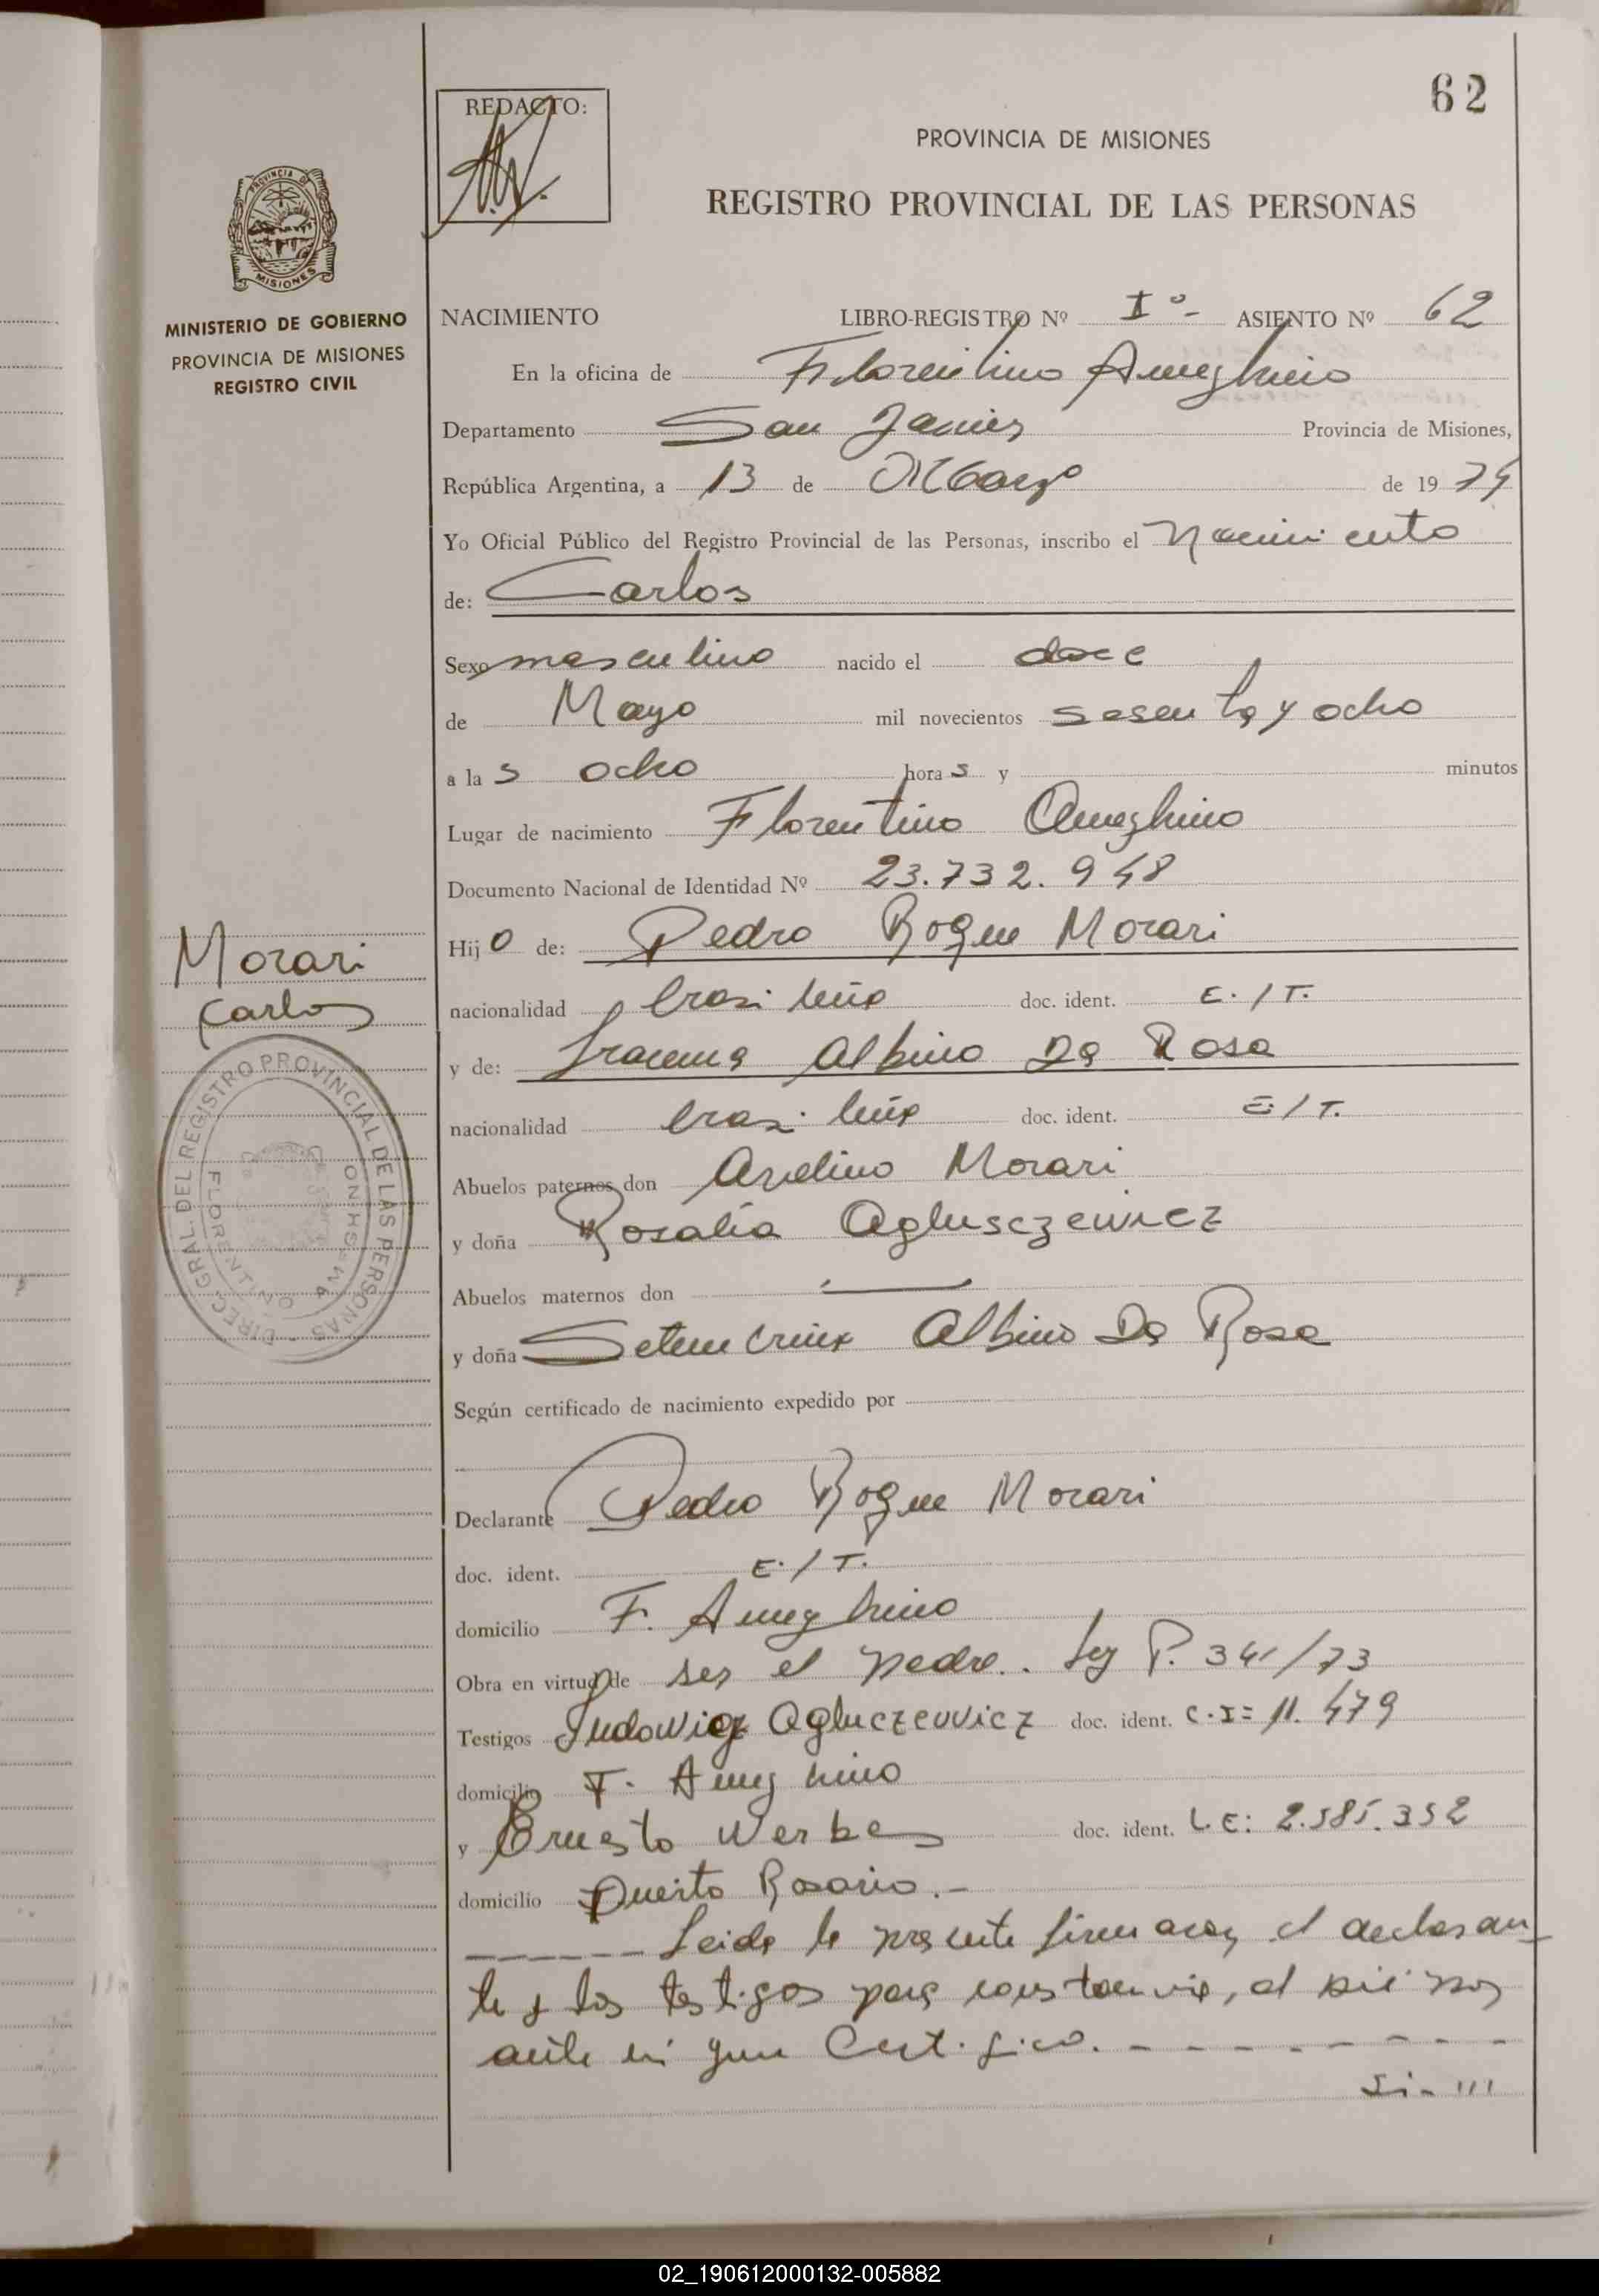 62
REDACTO:
PROVINCIA DE MISIONES
REGISTRO PROVINCIAL DE LAS PERSONAS
PROVINCIA DE
MISIONES
MINISTERIO DE GOBIERNO
PROVINCIA DE MISIONES
REGISTRO CIVIL
NACIMIENTO LIBRO-REGISTRO Nº Iº- ASIENTO Nº 62
En la oficina de Florentino Ameghino
Departamento San Javier Provincia de Misiones,
República Argentina, a 13 de Marzo de 1974
Yo Oficial Público del Registro Provincial de las Personas, inscribo el Nacimiento
de: Carlos
Sexo masculino nacido el doce
de Mayo mil novecientos sesenta y ocho
a la s ocho hora s y minutos
Lugar de nacimiento Florentino Ameghino
Documento Nacional de Identidad Nº 23.732.948
Hij o de: Pedro Roque Morari
nacionalidad brasileño doc. ident. E./T.
y de: Iracema Albino Da Rosa
nacionalidad brasileña doc. ident. E/T.
Abuelos paternos don Avelino Morari
y doña Rosalia Aglusczewicz
Abuelos maternos don
y doña Setembrina Albino Da Rosa
Según certificado de nacimiento expedido por
Declarante Pedro Roque Morari
doc. ident. E./T.
domicilio F. Ameghino
Obra en virtud de ser el padre.. Ley P. 341/73
Testigos Ludowicz Agluczewicz doc. ident. C.I= 11.479
domicilio F. Ameghino
y Ernesto Werbes doc. ident. L.E: 2.585.352
domicilio Puerto Rosario.-
Leida la presente firman el declaran
te y los testigos para constancia, al por
ante mi que Certifico.
Morari
Carlos
DIREC. GRAL. DEL REGISTRO PROVINCIAL DE LAS PERSONAS
FLORENTINO AMEGHINO
02_190612000132-005882